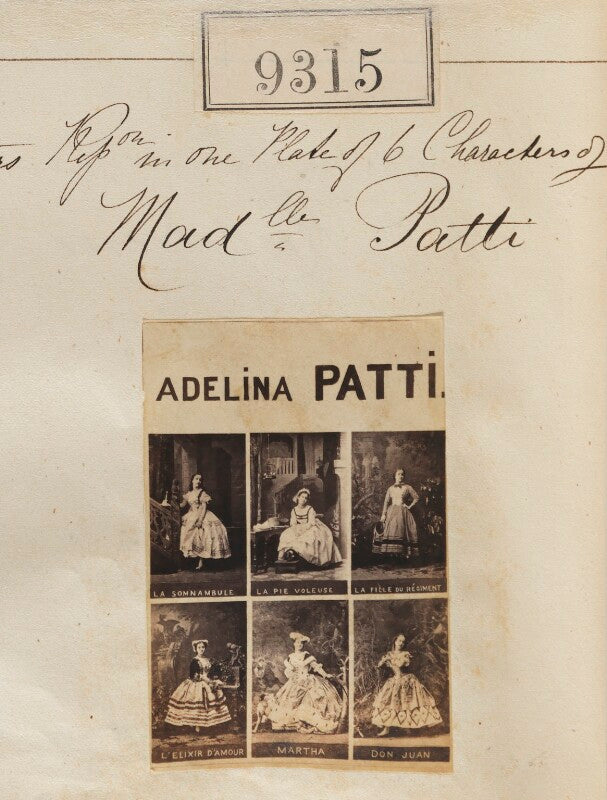 9315
Rep.on in one Plate of 6 Characters of
Mad.lle Patti
ADELiNA PATTi.
LA SOMNAMBULE
LA PIE VOLEUSE
LA FILLE DU RÉGIMENT
L'ELIXIR D'AMOUR
MARTHA
DON JUAN